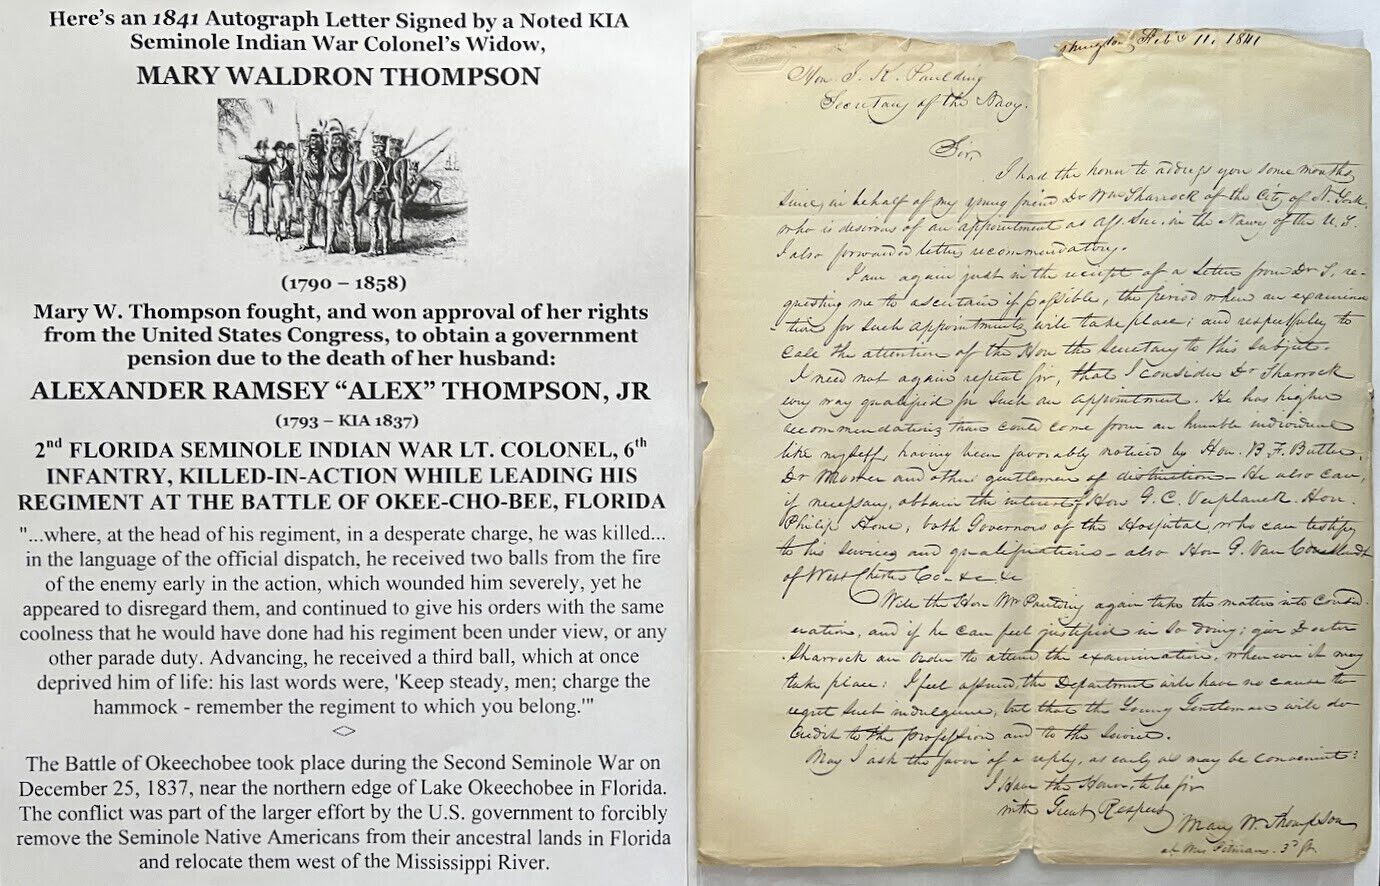 Here's an 1841 Autograph Letter Signed by a Noted KIA
Seminole Indian War Colonel's Widow,
MARY WALDRON THOMPSON
(1790 – 1858)
Mary W. Thompson fought, and won approval of her rights
from the United States Congress, to obtain a government
pension due to the death of her husband:
ALEXANDER RAMSEY "ALEX" THOMPSON, JR
(1793 – KIA 1837)
2nd FLORIDA SEMINOLE INDIAN WAR LT. COLONEL, 6th
INFANTRY, KILLED-IN-ACTION WHILE LEADING HIS
REGIMENT AT THE BATTLE OF OKEE-CHO-BEE, FLORIDA
"...where, at the head of his regiment, in a desperate charge, he was killed...
in the language of the official dispatch, he received two balls from the fire
of the enemy early in the action, which wounded him severely, yet he
appeared to disregard them, and continued to give his orders with the same
coolness that he would have done had his regiment been under view, or any
other parade duty. Advancing, he received a third ball, which at once
deprived him of life: his last words were, 'Keep steady, men; charge the
hammock - remember the regiment to which you belong.'"
The Battle of Okeechobee took place during the Second Seminole War on
December 25, 1837, near the northern edge of Lake Okeechobee in Florida.
The conflict was part of the larger effort by the U.S. government to forcibly
remove the Seminole Native Americans from their ancestral lands in Florida
and relocate them west of the Mississippi River.
shington Feby 11, 1841
Hon. J. K. Paulding
Secretary of the Navy.
Sir,
I had the honor to address you some months
since, in behalf of my young friend Dr Wm Sharrock of the City of N. York,
who is desirous of an appointment as Ass. Sur. in the Navy of the U. S.
I also forwarded letters recommendatory.
I am again just in the receipt of a letter from Dr S, re-
questing me to ascertain if possible, the period when an examina
tion for such appointments will take place; and respectfully to
call the attention of the Hon the Secretary to this subject.
I need not again repeat sir, that I consider Dr Sharrock
every way qualified for such an appointment. He has higher
recommendations than could come from an humble individual
like myself, having been favorably noticed by Hon. B. F. Butler,
Dr and other gentlemen of distinction - He also can,
if necessary, obtain the interest of Hon G. C. Verplanck. Hon.
Philip Hone, both Governors of the Hospital, who can testify
to his services and qualifications - also Hon G. Van Cortlandt
of West Chester Co - &c &c
Will the Hon Mr Paulding again take the matter into consid-
eration, and if he can feel justified in so doing; give Doctor
Sharrock an order to attend the examination, whenever it may
take place: I feel assured, the Department will have no cause to
regret such indulgence, but that the Young Gentleman will do
credit to the profession and to the Service.
May I ask the favor of a reply, as early as may be convenient?
I Have the Honor, to be sir
with Great Respect
Mary W. Thompson
at Mrs Pitmans. 3d St.